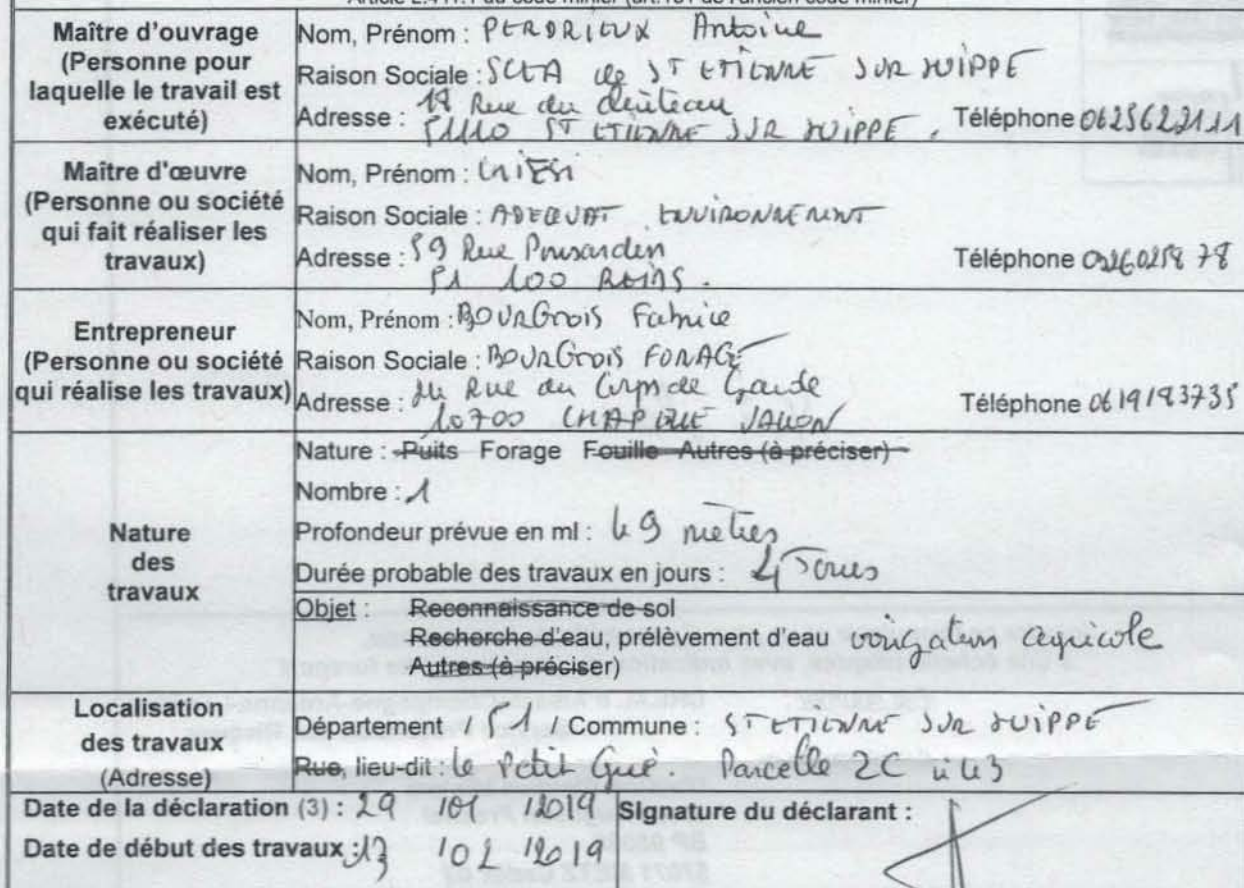 Article L.411.1 du code minier (art.131 de l'ancien code minier)
Maître d'ouvrage
(Personne pour
laquelle le travail est
exécuté)
Nom, Prénom : PERDRIEUX Antoine
Raison Sociale : SCEA de ST ETIENNE SUR SUIPPE
Adresse : Rue du
51110 ST ETIENNE SUR SUIPPE . Téléphone 0625622111
Maître d'œuvre
(Personne ou société
qui fait réaliser les
travaux)
Nom, Prénom :
Raison Sociale : ADEQUAT ENVIRONNEMENT
Adresse : 59 Rue Ponsardin
51 100 REIMS .
Téléphone
Entrepreneur
(Personne ou société
qui réalise les travaux)
Nom, Prénom : BOURGEOIS Fabrice
Raison Sociale : BOURGEOIS FORAGE
Adresse : Rue du Corps de Garde
10700 CHAPELLE VALLON
Téléphone 0619183735
Nature
des
travaux
Nature : Puits Forage Fouille Autres (à préciser)
Nombre : 1
Profondeur prévue en ml : 49 metres
Durée probable des travaux en jours : 4 Jours
Objet : Reconnaissance de sol
Recherche d'eau, prélèvement d'eau irrigation agricole
Autres (à préciser)
Localisation
des travaux
(Adresse)
Département / 51 / Commune : ST ETIENNE SUR SUIPPE
Rue, lieu-dit : Le Petit Gué . Parcelle ZC n° 43
Date de la déclaration (3) : 29 /01 /2019
Signature du déclarant :
Date de début des travaux : 13 /02 /2019